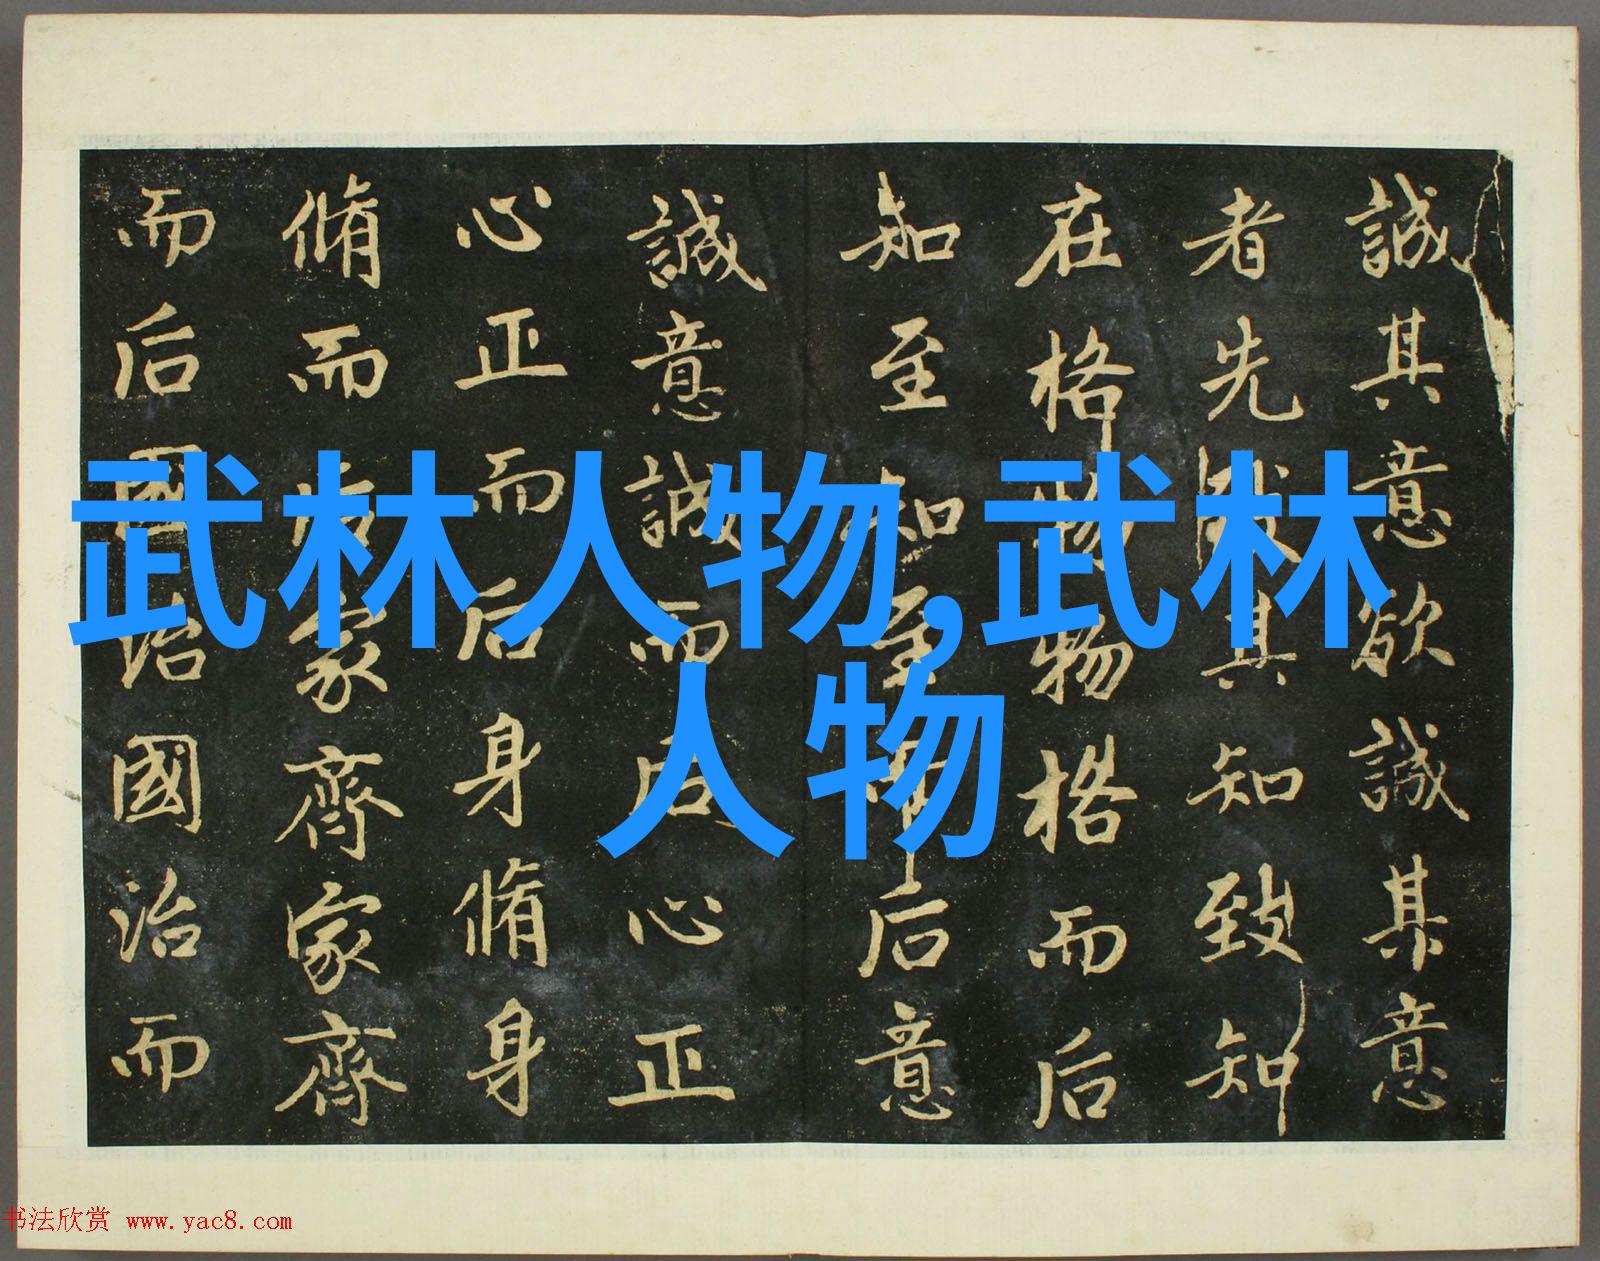 武林人物,武林
人物
誠其意欲誠其意
者先致其知致知
在格物物格而后
知至知至而后意
誠意誠而后心正
心正而后身脩身
脩而后家齊家齊
而后國治國治而
书法欣赏 www.yac8.com